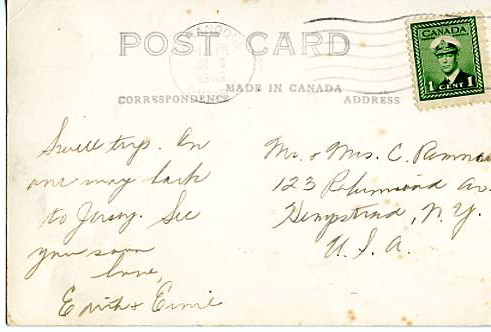 POST CARD
MADE IN CANADA
CORRESPONDENCE
ADDRESS
CANADA
1 CENT 1
Swell trip. On
our way back
to Jersey. See
you soon
love,
Edith & Ernie
Mr. & Mrs. C.
123 Av.
Hempstead, N.Y.
U.S.A.